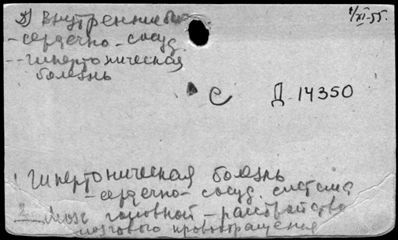 Д) Внутренние б.
1/XI-55.
- сердечно - сосуд.
-- гипертоническая
болезнь
С
Д-14350
1 Гипертоническая болезнь
- сердечно - сосуд. система
2. Мозг головной - расстройство
мозгового кровообращения